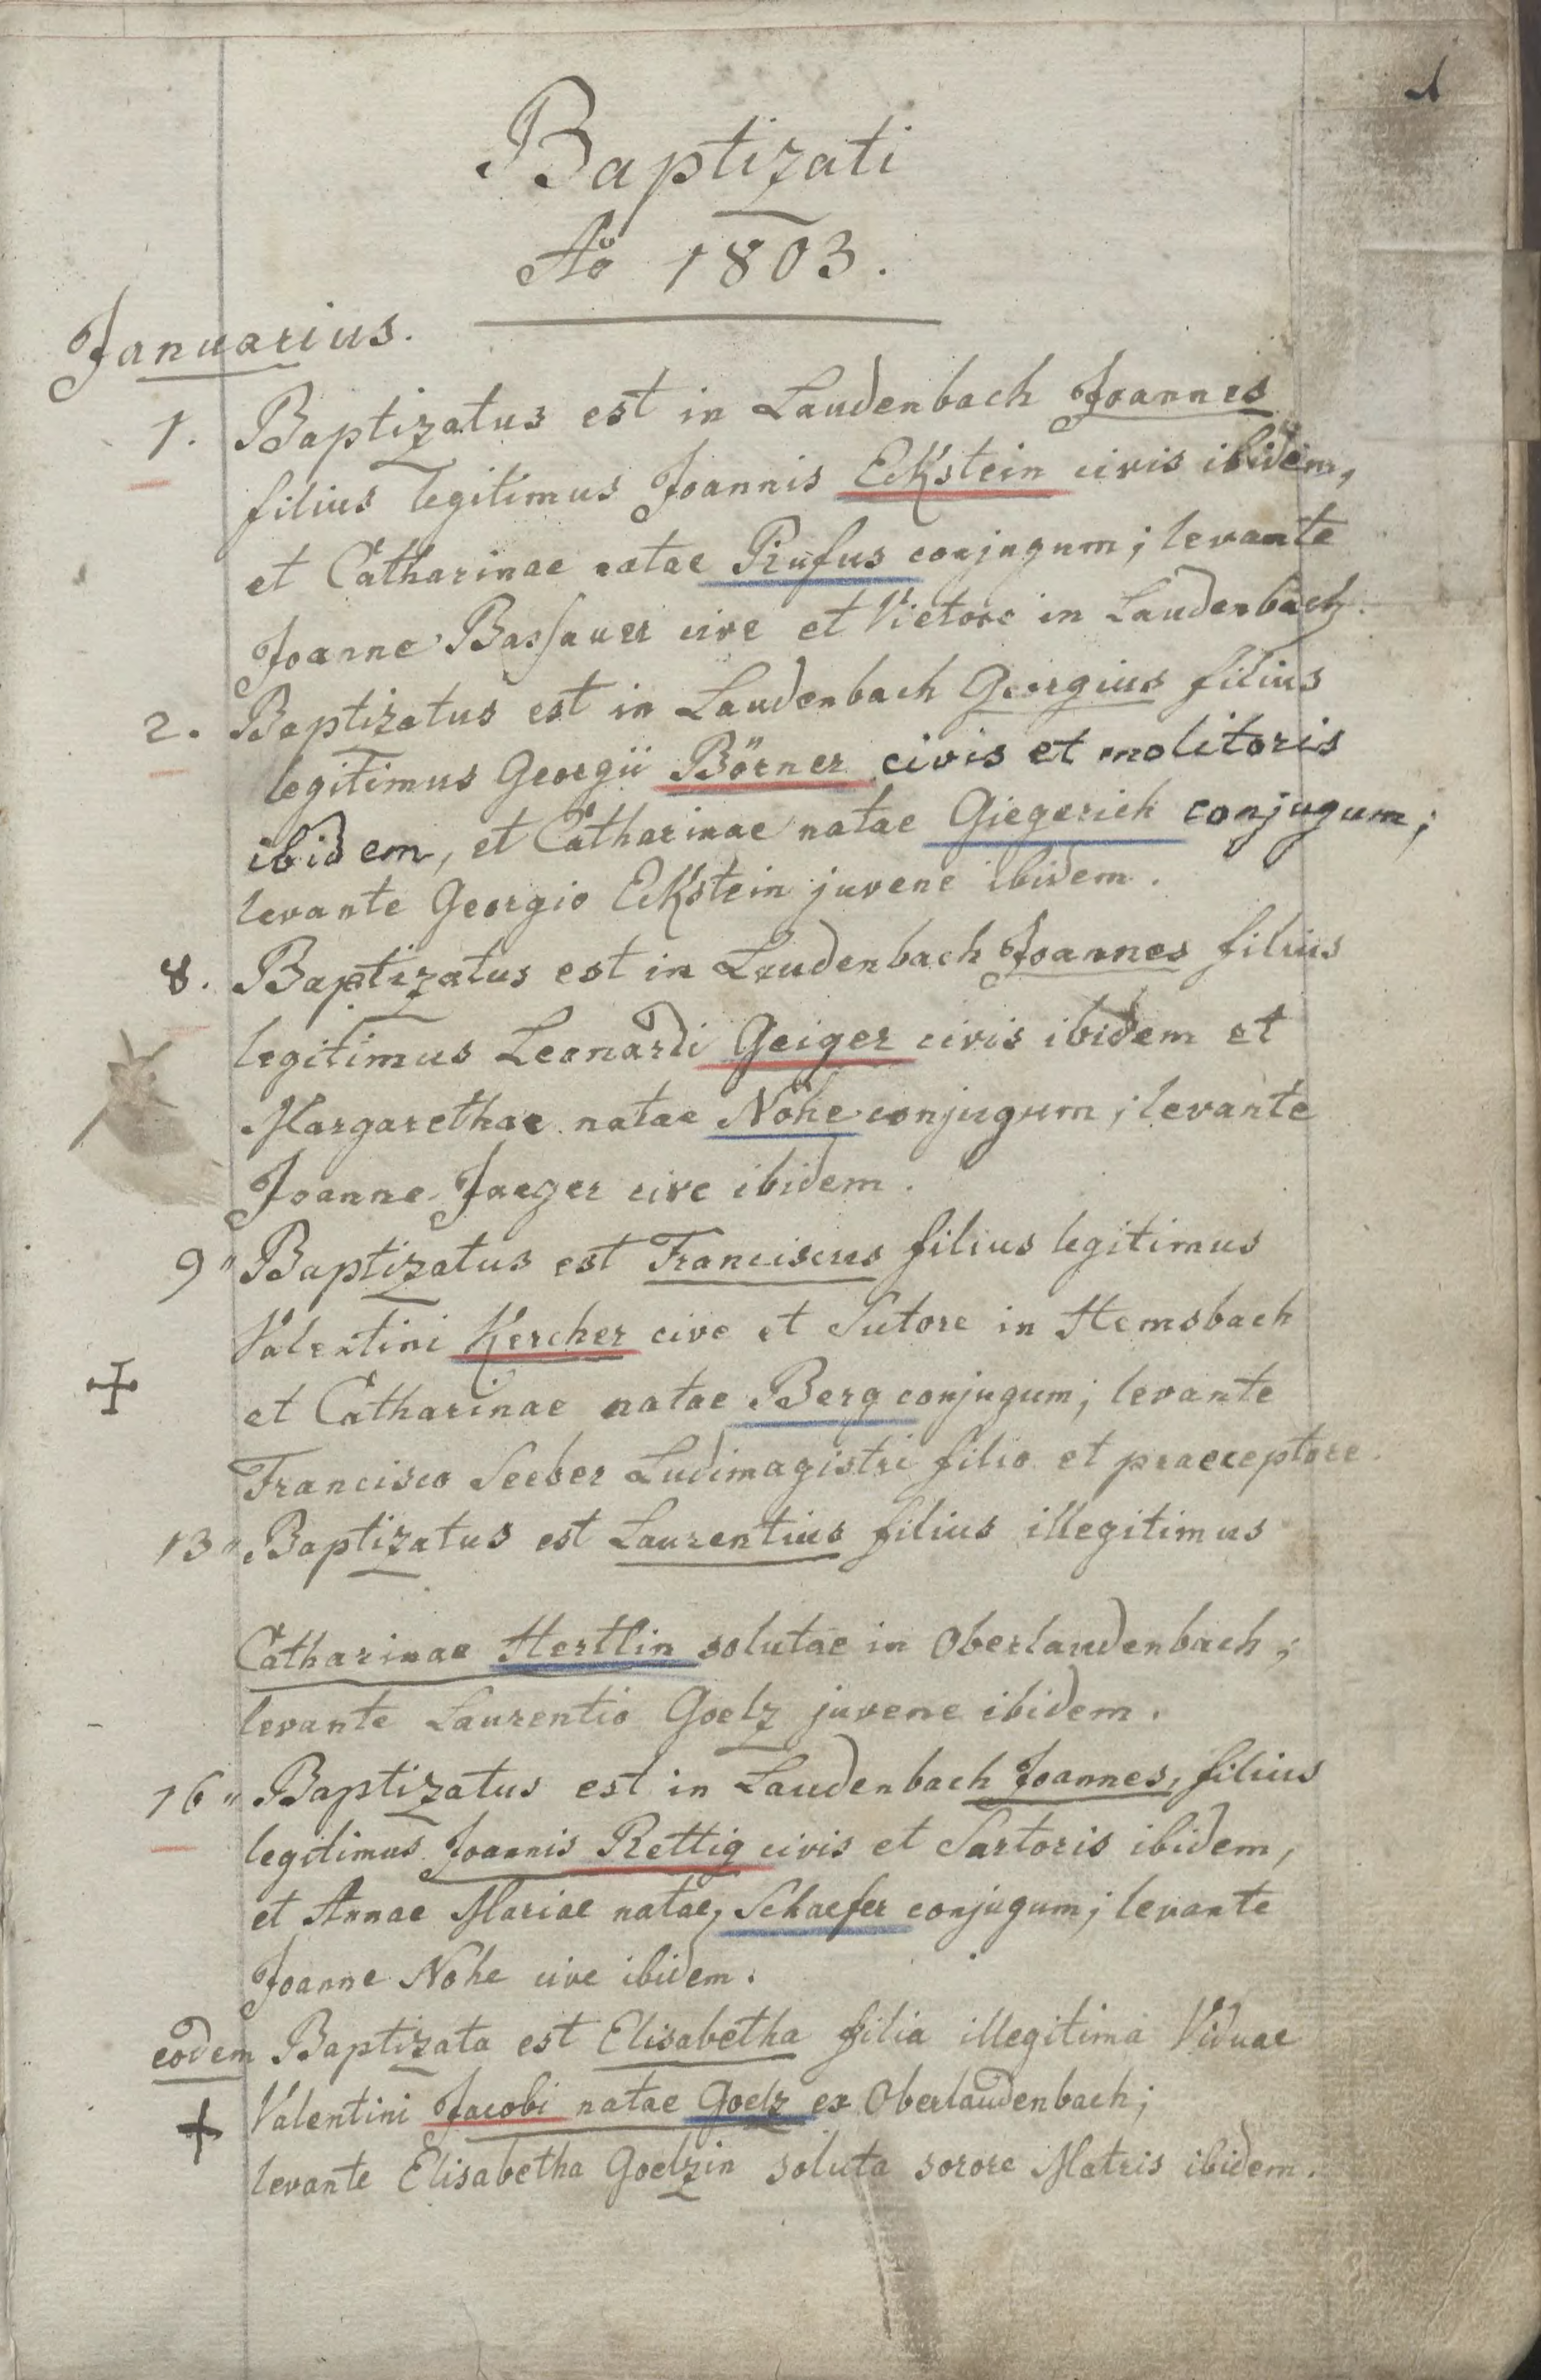 1
Baptizati
Ao 1803.
Januarius.
1. Baptizatus est in Laudenbach Joannes
filius legitimus Joannis Eckstein civis ibidem,
et Catharinae natae Rufus conjugum; levante
Joanne Bassauer cive et Vietore in Laudenbach.
2. Baptizatus est in Laudenbach Georgius filius
legitimus Georgii Börner civis et molitoris
ibidem, et Catharinae natae Giegerich conjugum;
levante Georgio Eckstein juvene ibidem.
8. Baptizatus est in Laudenbach Joannes filius
legitimus Leonardi Geiger civis ibidem et
Margarethae natae Nohe conjugum; levante
Joanne Jaeger cive ibidem.
9" Baptizatus est Franciscus filius legitimus
Valentini Kercher cive et Sutore in Hemsbach
et Catharinae natae Berg conjugum; levante
Francisco Seeber Ludimagistri filio et praeceptore.
13" Baptizatus est Laurentius filius illegitimus
Catharinae Hertlin solutae in Oberlaudenbach;
levante Laurentio Goelz juvene ibidem.
16" Baptizatus est in Laudenbach Joannes, filius
legitimus Joannis Rettig civis et Sartoris ibidem,
et Annae Mariae natae, Schaefer conjugum; levante
Joanne Nohe cive ibidem.
eodem Baptizata est Elisabetha filia illegitima Viduae
Valentini Jacobi natae Goelz ex Oberlaudenbach;
levante Elisabetha Goelzin soluta sorore Matris ibidem.